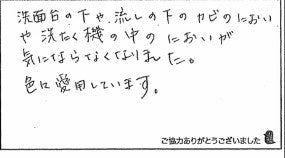 洗面台の下や、流しの下のカビのにおい
や洗たく機の中のにおいが
気にならなくなりました。
色に愛用しています。
ご協力ありがとうございました